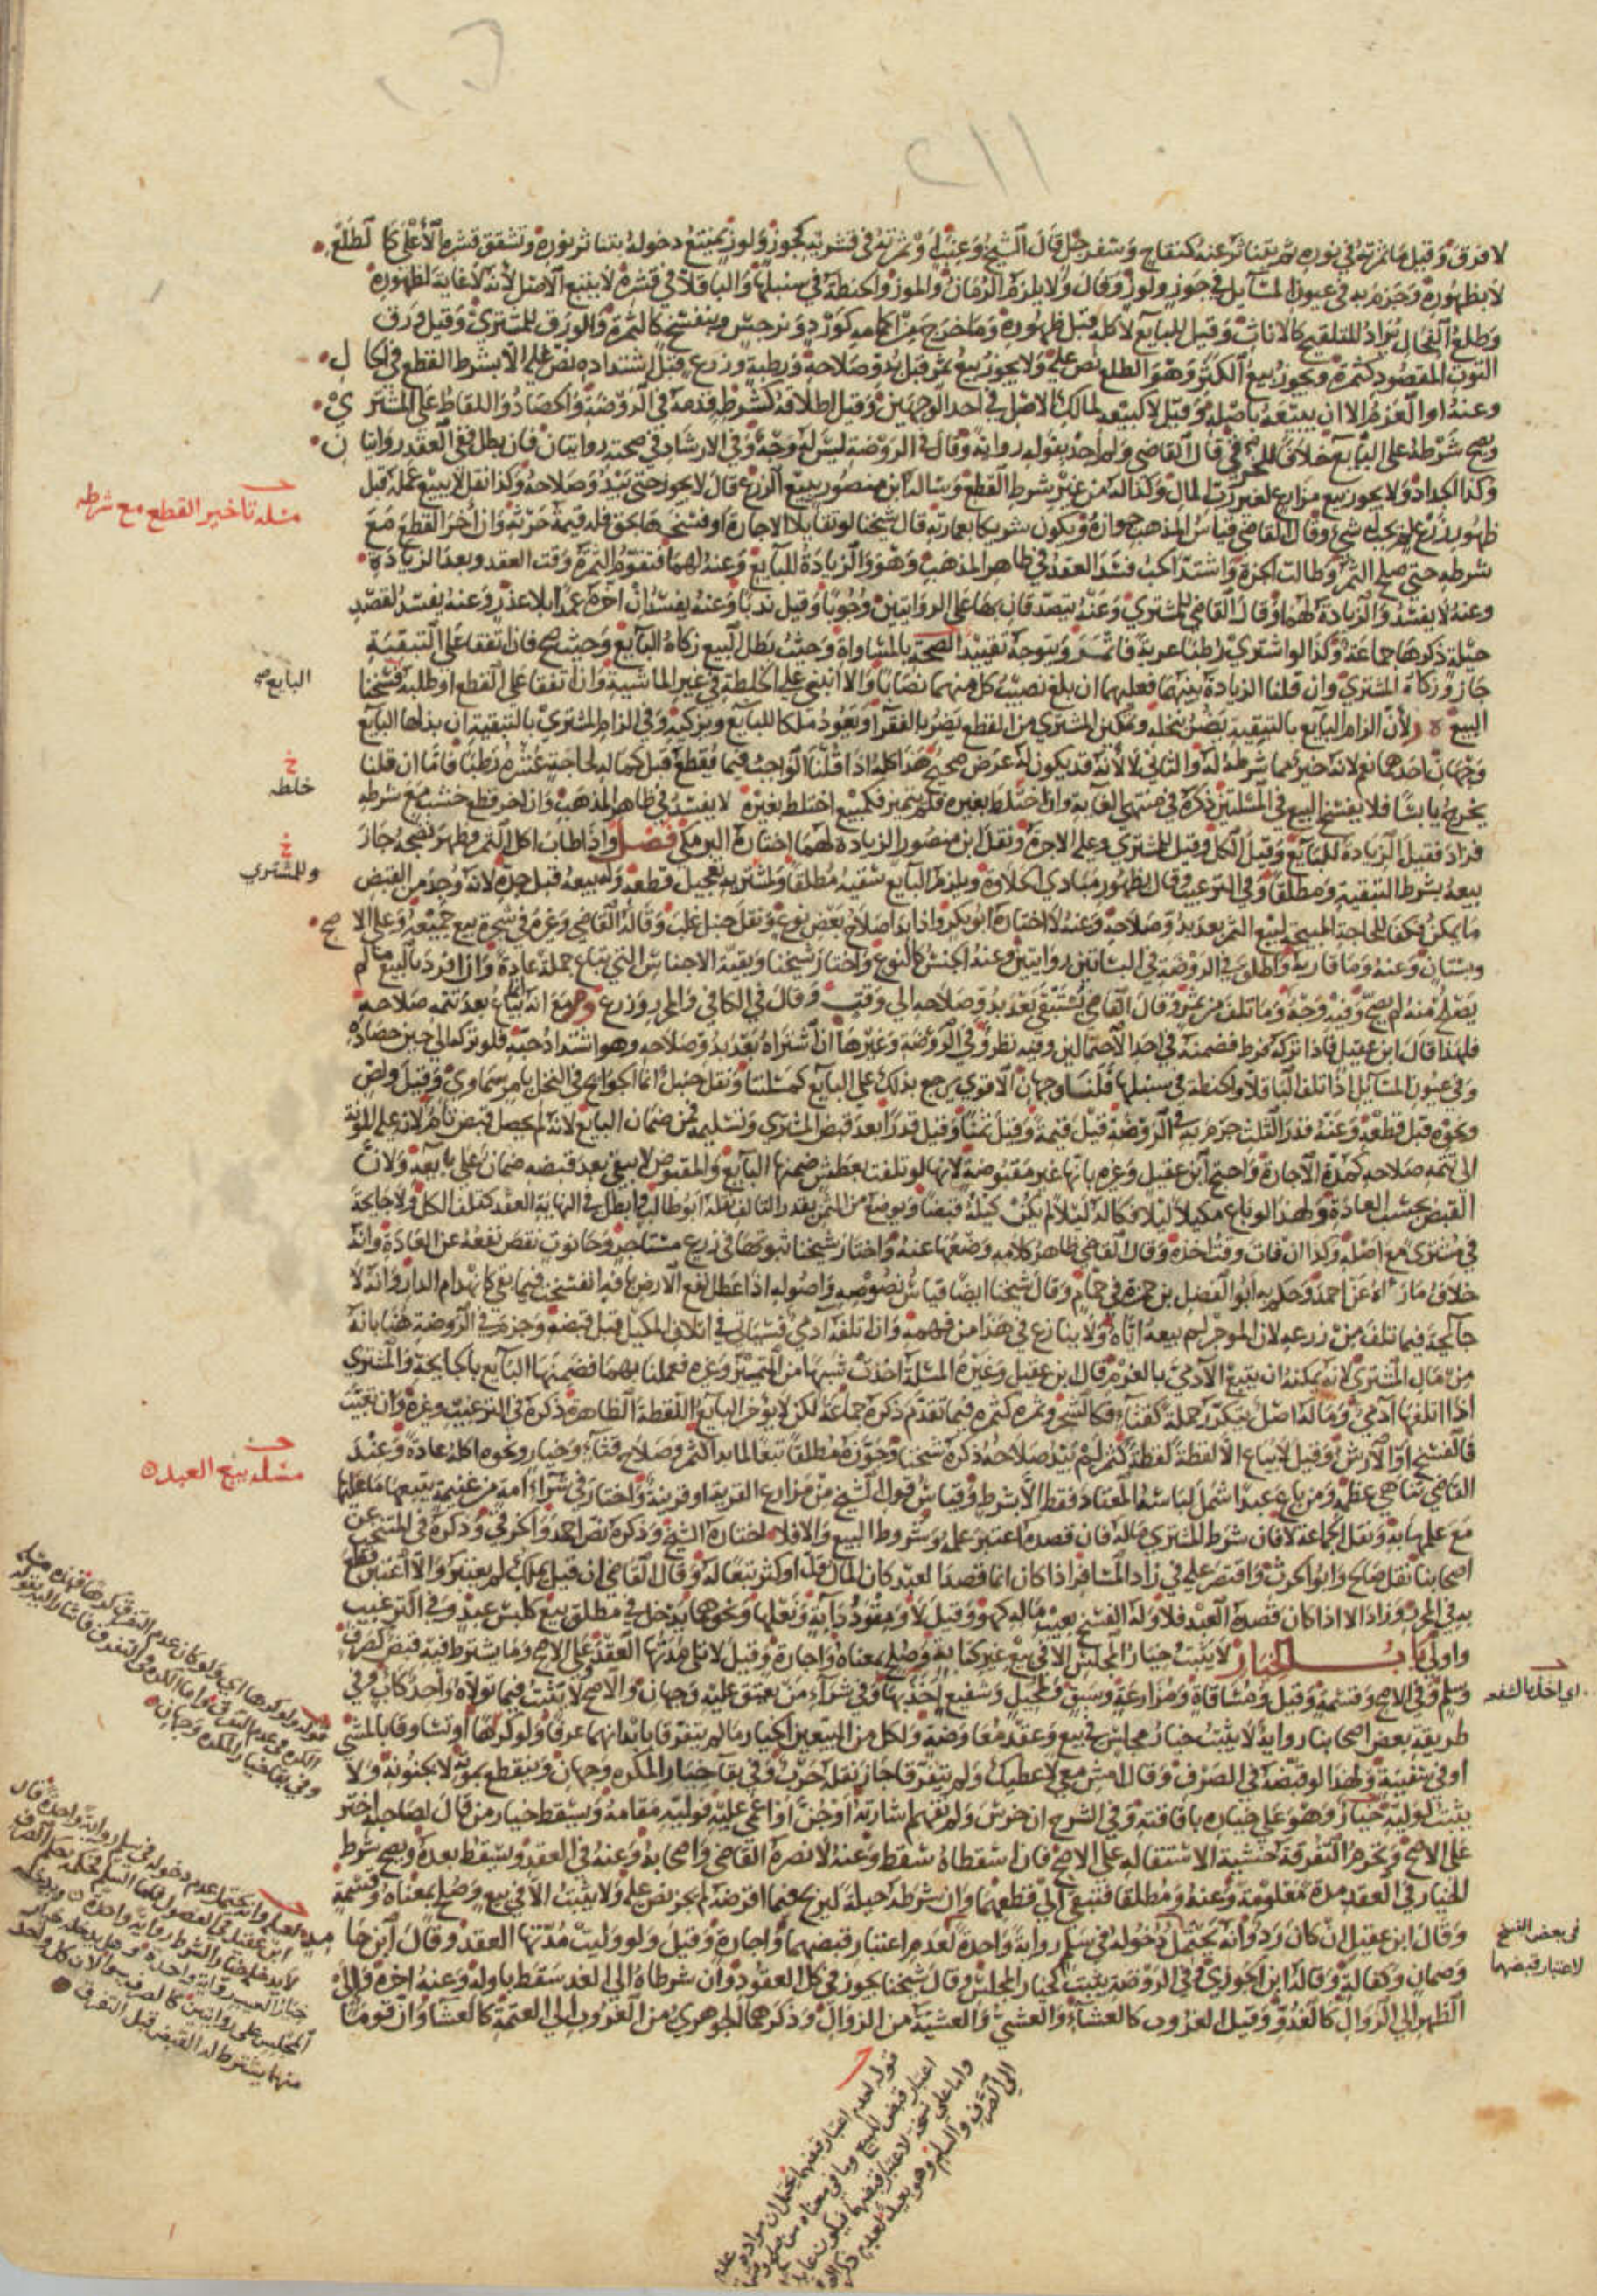 ٢١١
لا فرق وقيل ما ثمرته في نوره ثم يتناثر عنه كتفاح وسفرجل قال الشيخ وعنب أو ثمرته في قشريه كجوز ولوز يمتنع دخوله بتناثر نوره وتشقق قشره الأعلى كالطلع
لا بظهوره وجزم به في عيون المسايل في جوز ولوز وقال ولا يلزم الرمان والموز والحنطة في سنبلها والباقلا في قشره لا يتبع الاصل لأنه لا غاية لظهوره
وطلع الفحال يراد للتلقيح كالاناث وقيل للبايع لأكله قبل ظهوره وما خرج من اكمامه كورد ونرجس وبنفسج كالثمرة والورق للمشتري وقيل ورق
التوت المقصود كثمرة ويجوز بيع الكثر وهو الطلع نص عليه ولا يجوز بيع ثمر قبل بدو صلاحه ورطبة وزرع قبل اشتداده نص عليه الا بشرط القطع في الحال
وعنه او العزم الا ان يبيعه باصله وقيل لا كبيعه لمالك الاصل في احد الوجهين وقيل اطلاقه كشرط قدمه في الروضة والحصاد واللقاط على المشتري
ويصح شرطه على البايع خلافا للخرقي قال القاضي ولم أجد بقوله رواية وقال في الروضة ليس له وجه وفي الارشاد في صحته روايتان فان بطل ففي العقد روايتان
وكذا الجداد ولا يجوز بيع مزارع لغير رب المال وكذا له من غير شرط القطع وساله ابن منصور بيع الزرع قال لا يجوز حتى يبدو صلاحه وكذا نقل لا يبيع عمله قبل
ظهور زرع لم يجب له شيء وقال القاضي قياس المذهب جوازه ويكون شريكا بعمارته قال شيخنا لو تقايلا الاجارة او فسخها بحق فله قيمة حرثه وان أخر القطع مع
شرطه حتى صلح الثمر وطالت الجزة واشتد الحب فسد العقد في ظاهر المذهب وهو والزيادة للبايع وعنه لهما فتقوم الثمرة وقت العقد وبعد الزيادة
وعنه لا يفسد والزيادة لهما وقال القاضي للمشتري وعنه يتصدقان بها على الروايتين وجوبا وقيل ندبا وعنه يفسد ان اخره عمدا بلا عذر وعنه يفسد لقصد
حيلة ذكرها جماعة وكذا لو اشترى رطبا عرية فاتمر ويتوجه تقييد الصحة بالمساواة وحيث بطل البيع زكاه البايع وحيث صح فان اتفقا على التبقية
جاز وزكاة المشتري وان قلنا الزيادة بينهما فعليهما ان بلغ نصيب كل منهما نصابا والا انبنى على الخلطة في غير الماشية وان اتفقا على القطع او طلبه فسخنا
البيع لأن الزام البايع بالتبقية يضر بنخله وتمكين المشتري من القطع يضر بالفقرا ويعود ملكا للبايع ويزكيه وفي الزام المشتري بالتبقية ان بذلها البايع
وجهان احدهما نعم لانه خير مما شرطه له والثاني لا لأنه قد يكون له غرض صحيح هذا كله اذا قلنا الواجب فيما يقطع قبل كماله لحاجة عشره رطبا فاما ان قلنا
يخرجه يابسا فلا يفسخ البيع في المسلتين ذكره في منتهى الغاية وان اختلط بغيره فلم يتميز فكمبيع اختلط بغيره لا يفسد في ظاهر المذهب وان اخر قطع خشب مع شرطه
فزاد فقيل الزيادة للبايع وقيل الكل وقيل للمشتري وعليه الاجرة ونقل ابن منصور الزيادة لهما اختاره البرمكي فصل واذا طاب اكل الثمر وظهر نضجه جاز
بيعه بشرط التبقية ومطلقا وفي الترغيب وقال بظهور مبادي الحلاوة ويلزم البايع سقيه مطلقا ولمشتريه تعجيل قطعه وله بيعه قبل جده لانه وجد من القبض
ما يمكن فكفى للحاجة المبيحة لبيع الثمر بعد بدو صلاحه وعنه لا اختاره ابو بكر واذا بدا صلاح بعض نوع ونقل حنبل غلب وقاله القاضي وغيره في شجرة بيع جميعه وعلى الاصح
وبستان وعنه وما قاربه واطلق في الروضة في البساتين روايتين وعنه الجنس كالنوع واختاره شيخنا وبقية الاجناس التي تباع جملة عادة وان افرد بالبيع ما لم
يصلح منه لم يصح وفيه وجه وما تلف من ثمر وقال القاضي يستبقى بعد بدو صلاحه الى وقت وقال في الكافي والمحرر وزرع ومع انه يباع بعد تتمه صلاحه
فلهذا قال ابن عقيل فاذا تركه فرط فضمنه في احد الاحتمالين وفيه نظر وفي الروضة وغيرها ان اشتراه بعد بدو صلاحه وهو اشتداد حبه فلو تركه الى حين حصاده
وفي عيون المسايل اذا تلف الباقلا والحنطة في سنبلها فلنا وجهان الاقوى يرجع بذلك على البايع كمسلتنا ونقل حنبل انما الجوايح في النخل بامر سماوي وقيل ولص
ونحوه قبل قطعه وعنه قدر الثلث جزم به في الروضة قيل قيمة وقيل ثمنا وقيل قدرا بعد قبض المشتري وتسليمه فمن ضمان البايع لانه لم يحصل قبض تام لانه عليه المونة
الى تتمه صلاحه كمدة الاجارة واحتج ابن عقيل وغيره بانها غير مقبوضة لانها لو تلفت بعطش ضمنها البايع والمقبوض لا يبقى بعد قبضه ضمان على بايعه ولان
القبض بحسب العادة ولهذا لو باع مكيلا ليلا فكاله ليلا لم يكن كيله قبضا ويوضع من الثمن بقدر التالف نقله ابو طالب وابطل في النهاية العقد كتلف الكل ولا جايحة
في مشترى مع اصله وكذا ان فات وقت اخذه وقال القاضي ظاهر كلامه وضعها عنه واختار شيخنا ثبوتها في زرع مستاجر وحانوت نقص نفعه عن العادة وانه
خلاف ما رواه عن احمد وحكم به ابو الفضل بن حمزة في حمام وقال شيخنا ايضا قياس نصوصه واصوله اذا عطل نفع الارض بافة انفسخت فيما بقي كانهدام الدار وانه لا
جايحة فيما تلف من زرعه لان الموجر لم يبعه اياه ولا ينازع في هذا من فهمه وان اتلفه آدمي فسياتي في اتلاف المكيل قبل قبضه وجزم في الروضة هنا بانه
من مال المشتري لانه يمكنه ان يتبع الآدمي بالغرم وقال ابن عقيل وغيره المسلة اخذت شبها من المتميز وغيره فعملنا بهما فضمنها البايع بالجايحة والمشتري
اذا اتلفها آدمي وما له اصل يتكرر حمله كقثاء فكالشجر وثمره كثمره فيما تقدم ذكره جماعة لكن لا يؤخر البايع اللقطة الظاهرة ذكره في الترغيب وغيره وان تعيبت
فالفسخ او الارش وقيل لا يباع الا لقطة لقطة كثمر لم يبد صلاحه ذكره شيخنا وجوزه مطلقا تبعا لما بدا كثمر وصلاح قثاء وخيار ونحوه اكله عادة وعند
القاضي تناهي عظمه ومن باع عبدا شمل لباسه المعتاد فقط الا بشرط وقياس قول الشيخ من مزارع القرية او قرينة واختار في شراء امة من غنيمة يتبعها ما عليها
مع علمها به ونقل الجماعة لا فان شرط المشتري ماله فان قصده اعتبر علمه وشروط البيع والا فلا اختاره الشيخ وذكره نص احمد والخرقي وذكره في المنتخب عن
اصحابنا نقل صالح وابو الحرث واقتصر عليه في زاد المسافر اذا كان انما قصد العبد كان المال قل او كثر تبعا له وقال القاضي ان قيل يملك لم يعتبر والا اعتبر قطع
به في المحرر وزاد الا اذا كان قصده العبد فلا وله الفسخ بعيب ماله كهو وقيل لا ومقود دابة ونعلها ونحوهما يدخل في مطلق بيع كلبس عبد وفي الترغيب
واولى باب الخيار لا يثبت خيار المجلس الا في بيع غير كتابة وصلح بمعناه واجارة وقيل لا تلي مدتها العقد وعلى الاصح وما يشترط فيه قبض كصرف
وسلم وفي الاصح وقسمة وقيل ومساقاة ومزارعة وسبق ومحيل وشفيع اخذ بها وفي شراء من يعتق عليه وجهان والاصح لا يثبت فيما تولاه واحد كاب وفي
طريقة بعض اصحابنا رواية لا يثبت خيار مجلس في بيع وعقد معاوضة ولكل من البيعين الخيار ما لم يتفرقا بابدانهما عرفا ولو كرها او تساوقا بالمشي
او في سفينة ولهذا لو قبضه في الصرف وقال امش معي لاعطيك ولم يتفرقا جاز نقله حرب وفي بقا خيار المكره وجهان وينقطع بموته لا بجنونه ولا
يثبت لوليه خيار وهو على خياره بافاقته وفي الشرح ان خرس ولم تفهم اشارته او جن او اغمي عليه فوليه مقامه ويسقط خيار من قال لصاحبه اختر
على الاصح وتحرم الفرقة خشية الاستقالة على الاصح فان اسقطاه سقط وعنه لا نصره القاضي واصحابه وعنه في العقد ويسقط بعده ويصح شرط
الخيار في العقد مدة معلومة وعنه ومطلقا فتبقى الى قطعهما وان شرطه حيلة ليربح فيما اقرضه لم يجز نص عليه ولا يثبت الا في بيع وصلح بمعناه وقسمة
وقال ابن عقيل ان كان رد وانه يحتمل دخوله في سلم رواية واحدة لعدم اعتبار قبضهما واجارة وقيل ولو وليت مدتها العقد وقال ابن حا
وضمان وكفالة وقاله ابن الجوزي وفي الروضة يثبت كخيار المجلس وقال شيخنا يجوز في كل العقود وان شرطاه الى الغد سقط باوله وعنه اخره والى
الظهر الى الزوال كالغدو وقيل الغروب كالعشاء والعشي والعشية من الزوال وذكرهما الجوهري من الغروب الى العتمة كالعشا وان قوما
مسله تاخير القطع مع شرطه
البايع صح
خ
خلطه
خ
وللمشتري
مسله بيع العبد
اي اخذ بالشفعه
في بعض النسخ
لاعتبار قبضهما
وفي بقا خيار المكره وجهان
منهما يشترط له القبض قبل التفرق